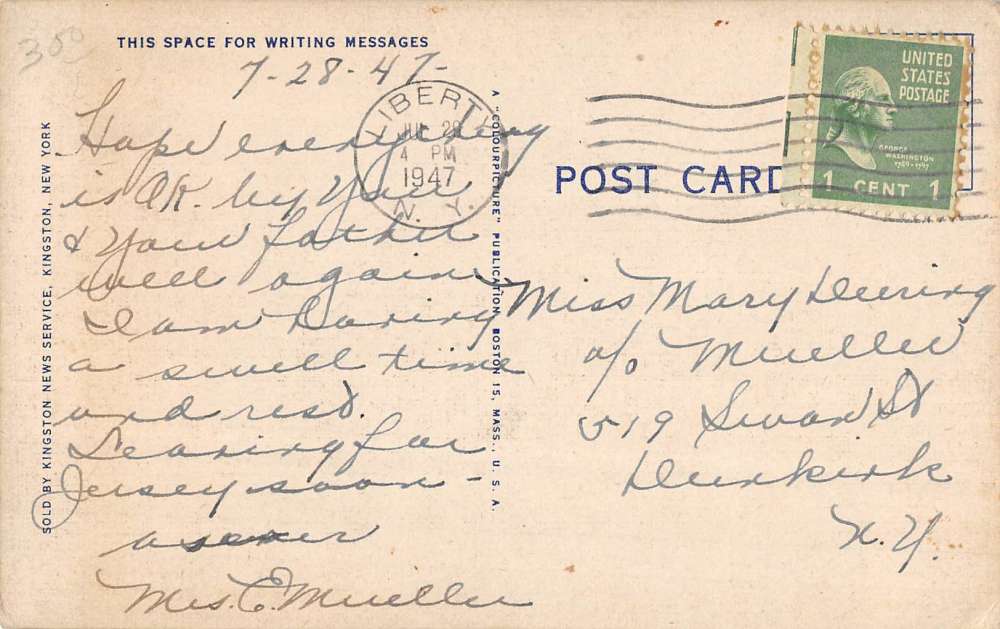 3 50
THIS SPACE FOR WRITING MESSAGES
7-28-47-
Hope everything
is OK. by You
& Your father
well again
I am having
a swell time
and rest.
Leaving for
Jersey soon -
as ever
Mrs. E. Mueller
SOLD BY KINGSTON NEWS SERVICE, KINGSTON, NEW YORK
A "COLOURPICTURE" PUBLICATION, BOSTON 15, MASS., U. S. A.
LIBERTY
JUL 28
4 PM
1947
N. Y.
POST CARD
UNITED
STATES
POSTAGE
GEORGE
WASHINGTON
1789-1797
1 CENT 1
Miss Mary Deering
c/o Mueller
519 Swan St
Dunkirk
N.Y.